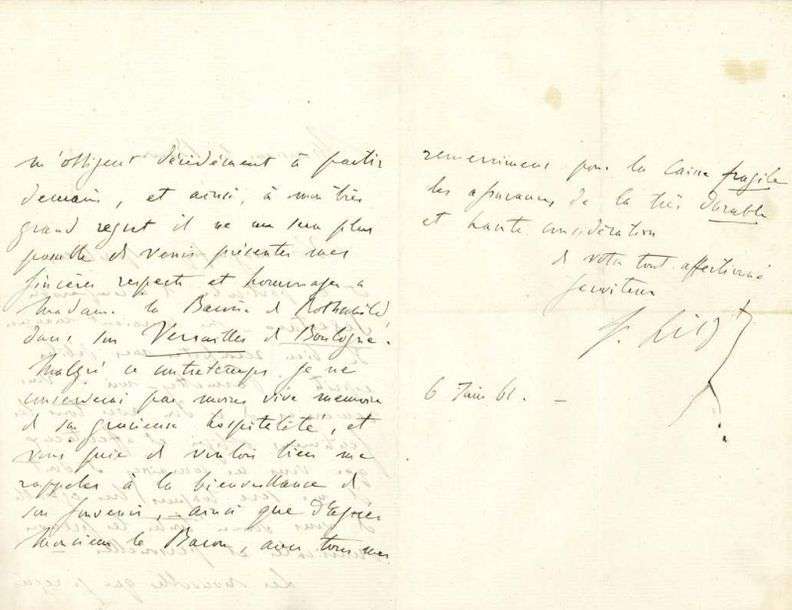 m'obligent décidément à partir
demain, et ainsi, à mon très
grand regret il ne me sera plus
possible de venir présenter mes
sincères respects et hommages a
Madame la Baronne de Rothschild
dans son Versailles de Boulogne.
Malgré ce contretemps je ne
conserverai pas moins vive memoire
de sa gracieuse hospitalité, et
vous prie de vouloir bien me
rappeler à la bienveillance de
son souvenir, – ainsi que d'agréer
Monsieur le Baron, avec tous mes
remerciments pour la Caisse fragile
les assurances de la très durable
et haute considération
de votre tout affectionné
serviteur
F. Liszt
6 Juin 61. –